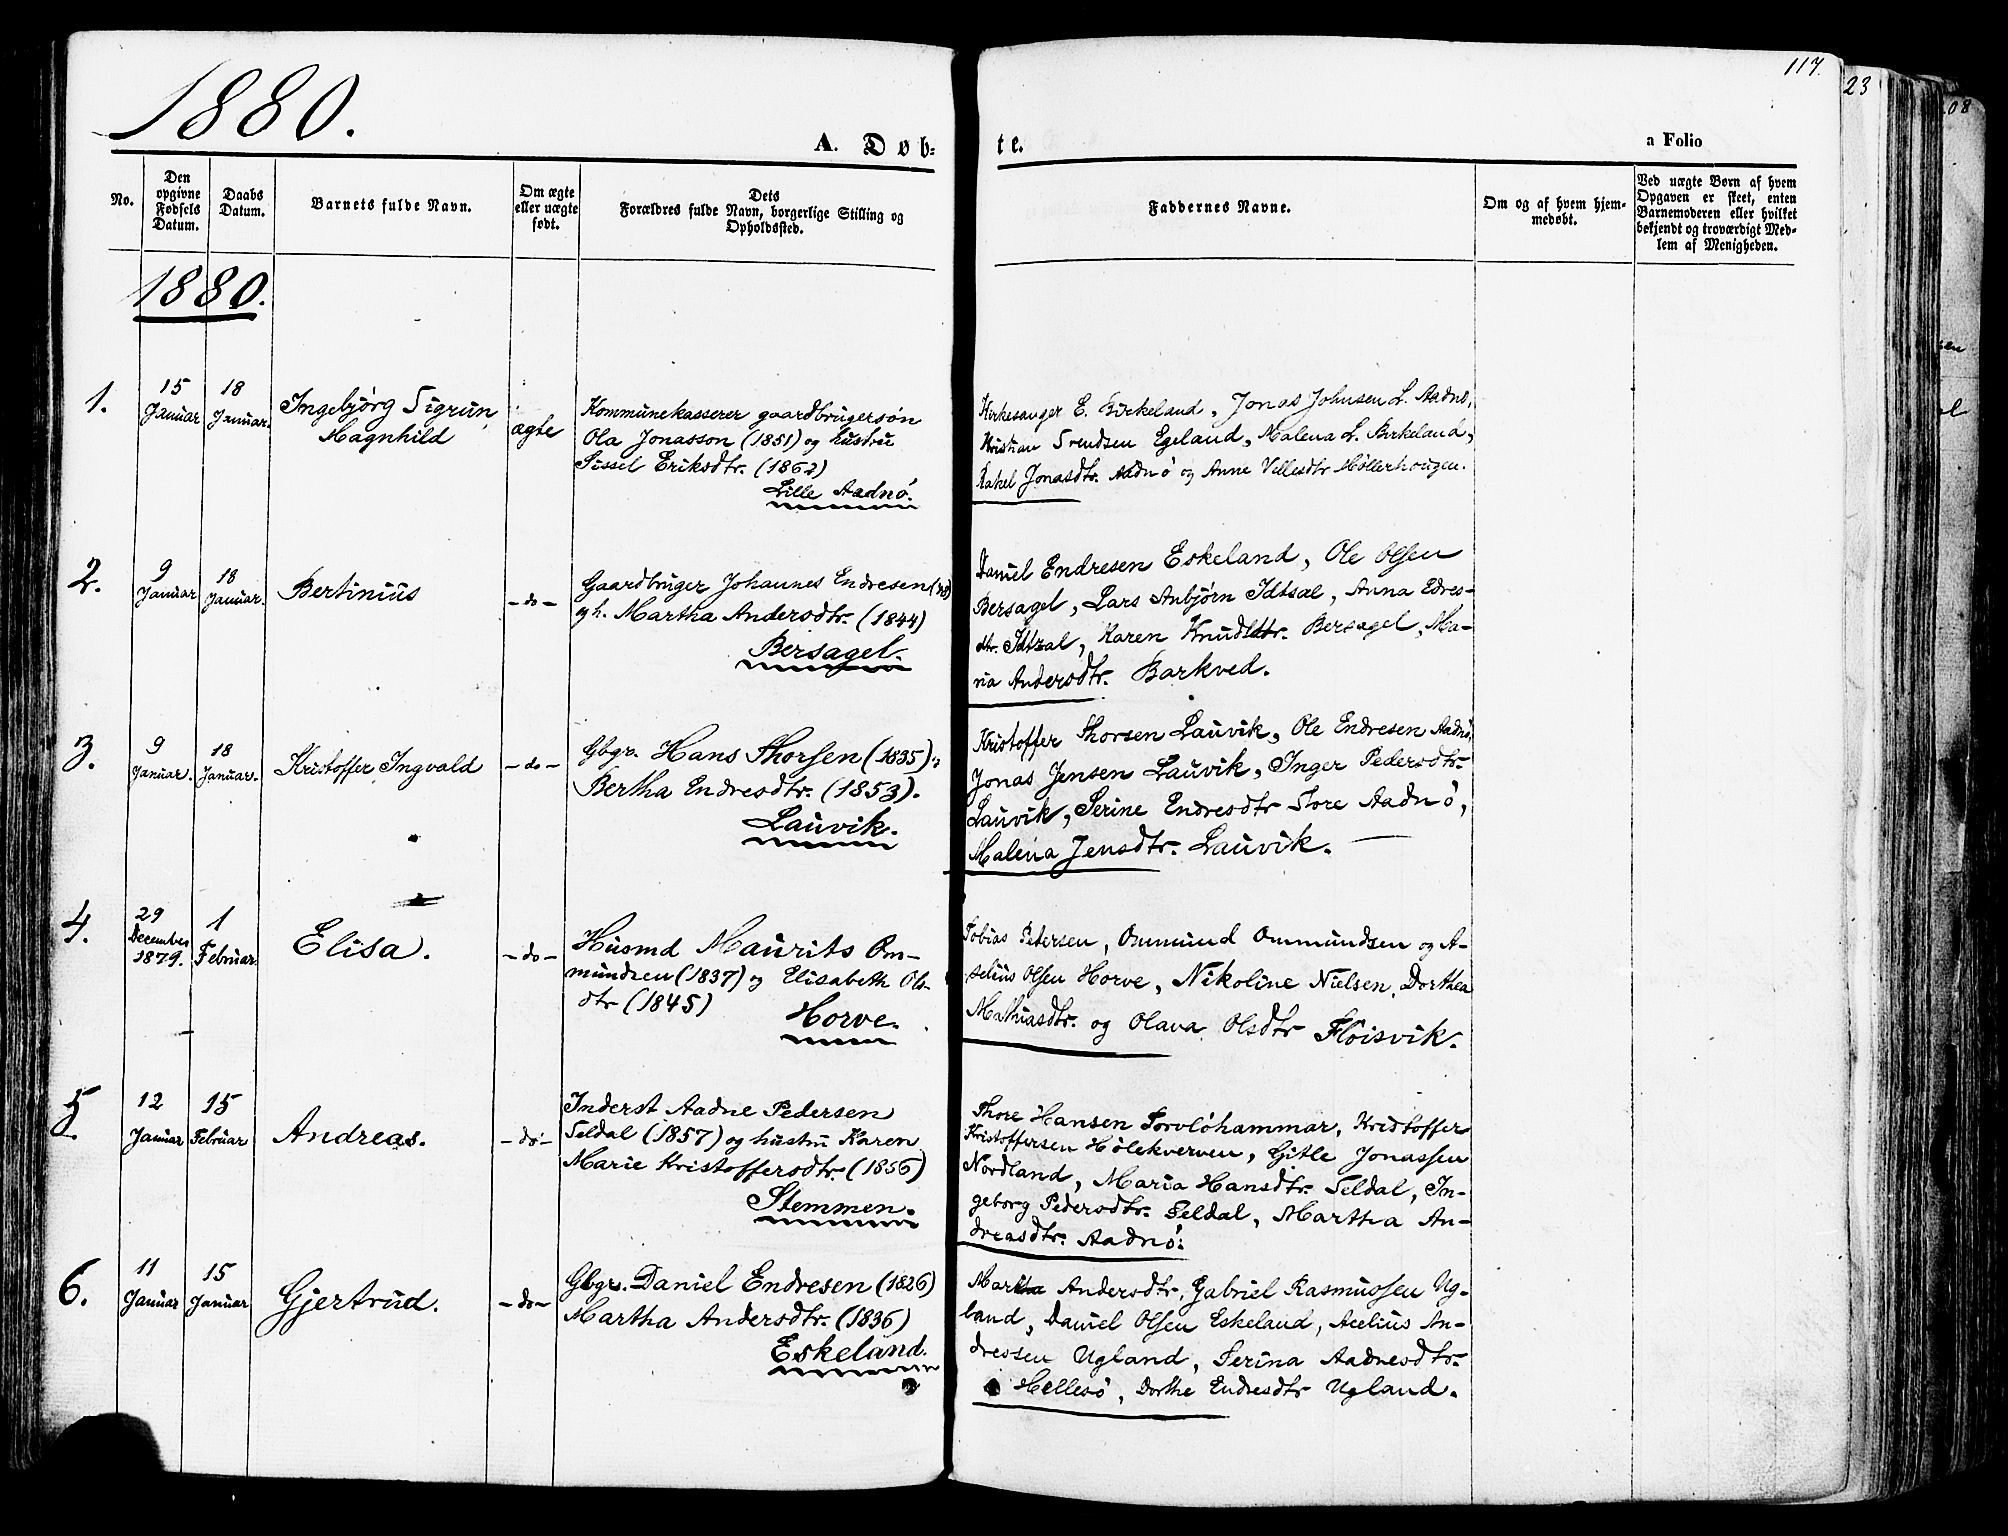 1880.
117.
23
08
A. Døb-
te.
a Folio
No.
Den
opgivne
Fødsels
Datum.
Daabs
Datum.
Barnets fulde Navn.
Om ægte
eller uægte
født.
Dets
Forældres fulde Navn, borgerlige Stilling og
Opholdssted.
Faddernes Navne.
Om og af hvem hjem-
medøbt.
Ved uægte Børn af hvem
Opgaven er skeet, enten
Barnemoderen eller hvilket
bekjendt og troværdigt Med-
lem af Menigheden.
1880.
1.
15
Januar
18
Januar.
Ingebjørg Sigrun
Magnhild
ægte
Kommunekasserer gaardbrugersøn
Ola Jonasson (1851) og hustru
Sissel Eriksdtr. (1862)
Lille Aadnø.
Kirkesanger E. Birkeland, Jonas Johnsen L. Aadnø,
Kristian Svendsen Egeland, Malena L. Birkeland,
Rakel Jonasdtr. Aadnø og Anne Villesdtr Møllerhougen.
2.
9
Januar
18
Januar.
Bertinius
- do -
Gaardbruger Johannes Endresen
og h. Martha Andersdtr. (1844)
Bersagel.
Daniel Endresen Eskeland, Ole Olsen
Bersagel, Lars Anbjørn Idtsal, Anna Edres-
dtr. Idtzal, Karen Knudsdtr. Bersagel, Ma-
ria Andersdtr. Barkved.
3.
9
Januar.
18
Januar.
Kristoffer Ingvald
- do -
Gbgr. Hans Thorsen (1835).
Bertha Endresdtr. (1853).
Lauvik.
Kristoffer Thorsen Lauvik, Ole Endresen Aadnø,
Jonas Jensen Lauvik, Inger Pedersdtr.
Lauvik, Serine Endresdtr Store Aadnø,
Malena Jensdtr. Lauvik.
4.
29
December
1879.
1
Februar.
Elisa.
- do -
Husmd Maurits Om-
mundsen (1837) og Elisabeth Ols-
dtr (1845)
Horve.
Tobias Petersen, Ommund Ommundsen og A-
selius Olsen Horve, Nikoline Nielsen, Dorthea
Mathiasdtr. og Olava Olsdtr Fløisvik.
5.
12
Januar
15
Februar
Andreas.
- do -
Inderst Aadne Pedersen
Seldal (1857) og hustru Karen
Marie Kristoffersdtr. (1856)
Stemmen.
Thore Hansen Torvløhammar, Kristoffer
Kristoffersen Hølekverven, Gitle Jonassen
Nordland, Maria Hansdtr. Seldal, In-
geborg Pedersdtr. Seldal, Martha An-
dreasdtr. Aadnø.
6.
11
Januar
15
Januar
Gjertrud.
- do -
Gbgr. Daniel Endresen (1826)
Martha Andersdtr. (1836)
Eskeland.
Martha Andersdtr, Gabriel Rasmussen Ug-
land, Daniel Olsen Eskeland, Acelius An-
dressen Ugland, Serina Aadnesdtr.
Hellesø, Dorthe Endresdtr Ugland.